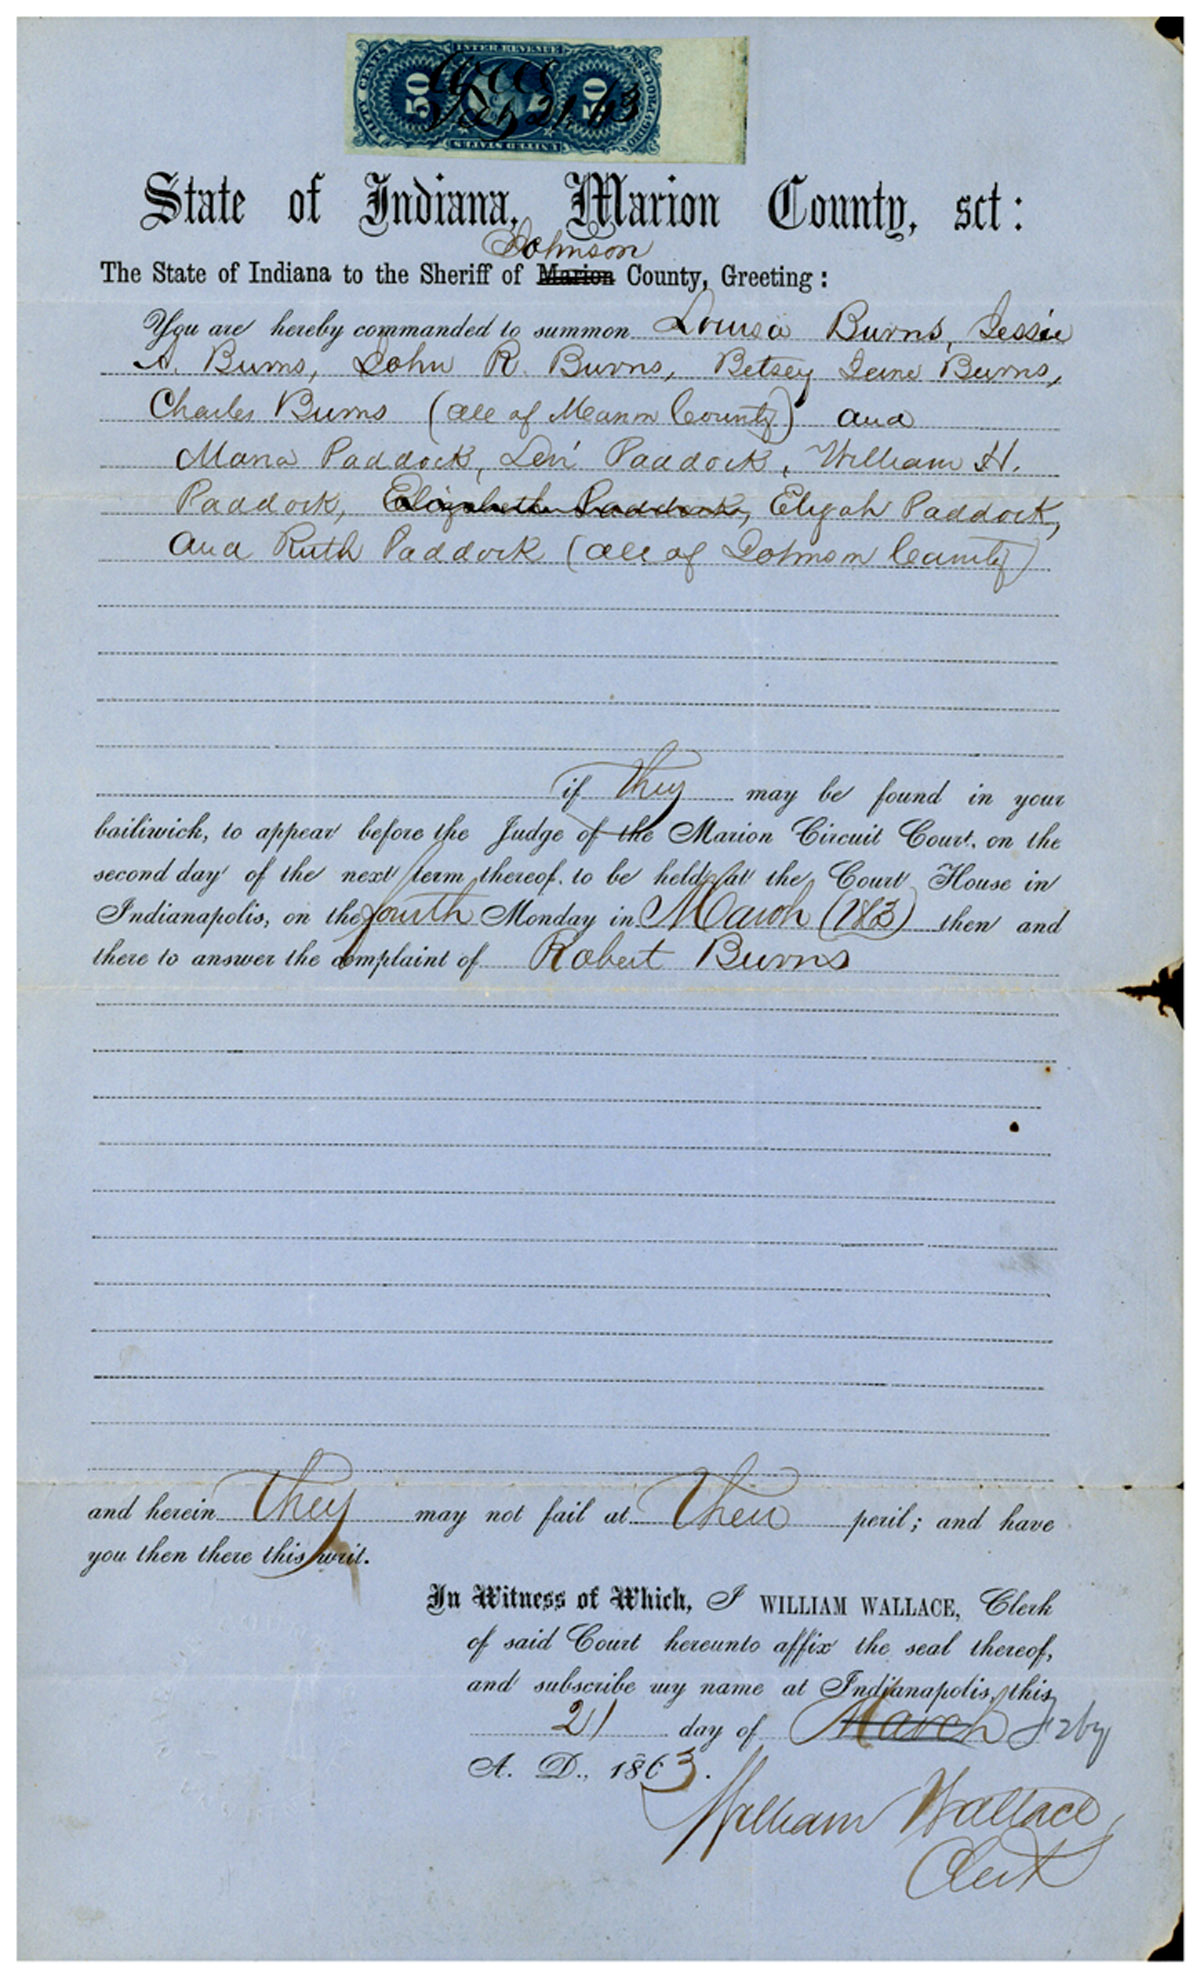 INTER. REVENUE
FIFTY CENTS
50
50
ORIGINAL PROCESS
UNITED STATES
WW
Feby 21. 63
State of Indiana, Marion County, sct:
Johnson
The State of Indiana to the Sheriff of Marion County, Greeting:
You are hereby commanded to summon Louisa Burns, Jessie
A. Burns, John R. Burns, Betsey Jane Burns,
Charles Burns (all of Marion County) and
Maria Paddock, Levi Paddock, William H.
Paddock, Elizabeth Paddock, Elijah Paddock,
and Ruth Paddock (all of Johnson County)
if they may be found in your
bailiwick, to appear before the Judge of the Marion Circuit Court, on the
second day of the next term thereof, to be held at the Court House in
Indianapolis, on the fourth Monday in March (1863) then and
there to answer the complaint of Robert Burns
and herein they may not fail at their peril; and have
you then there this writ.
In Witness of Which, I WILLIAM WALLACE, Clerk
of said Court hereunto affix the seal thereof,
and subscribe my name at Indianapolis, this
21 day of March Feby
A. D., 1863.
William Wallace,
Clerk